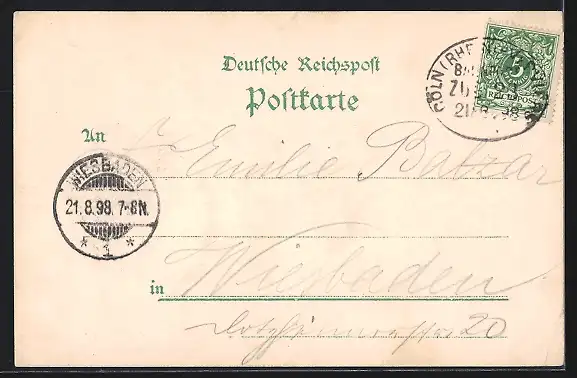 Deutsche Reichspost
Postkarte
5
REICHSPOST
CÖLN (RHEIN)
ZUG
21 8 98
An
Emilie Batzar
WIESBADEN
21.8.98. 7-8N.
* 1 *
in Wiesbaden
Dotzheimerstr 20